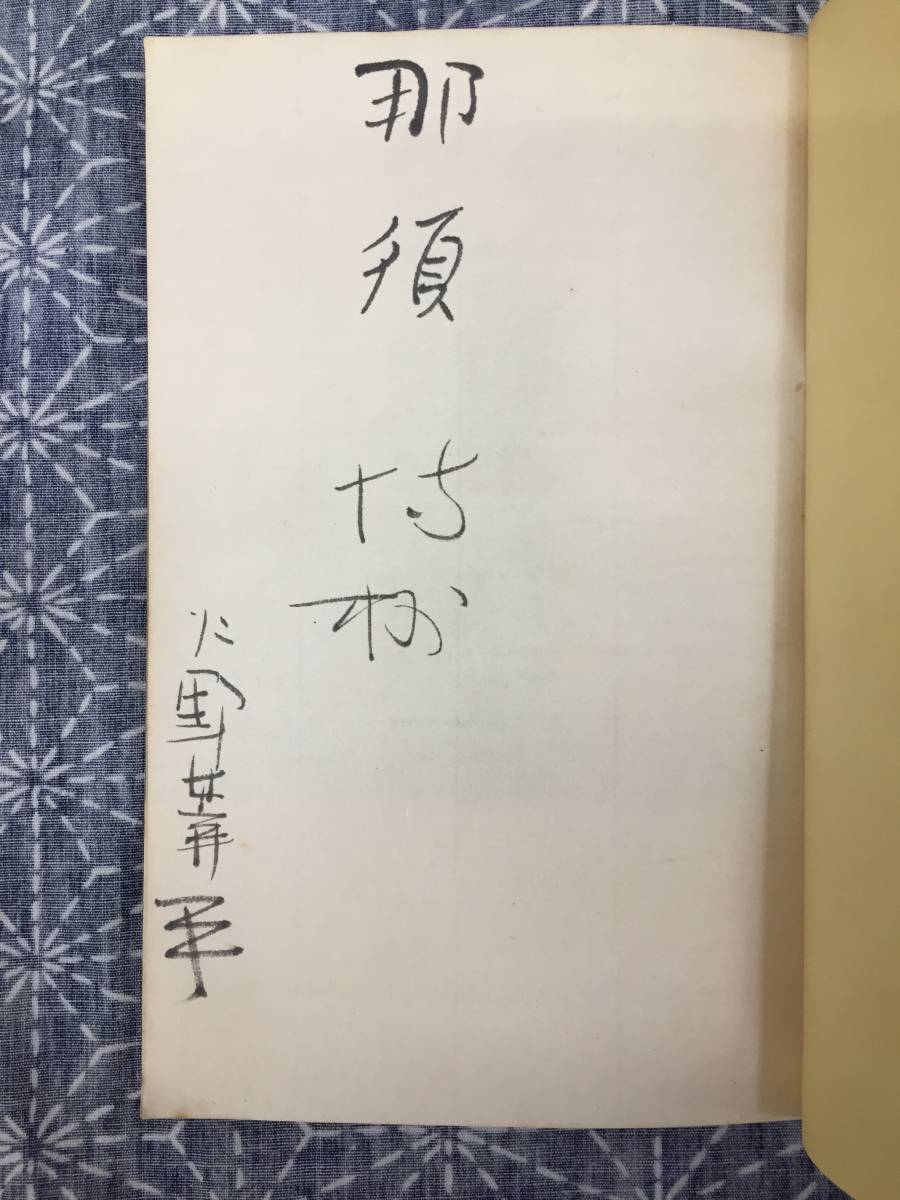 那須博様
火野葦平